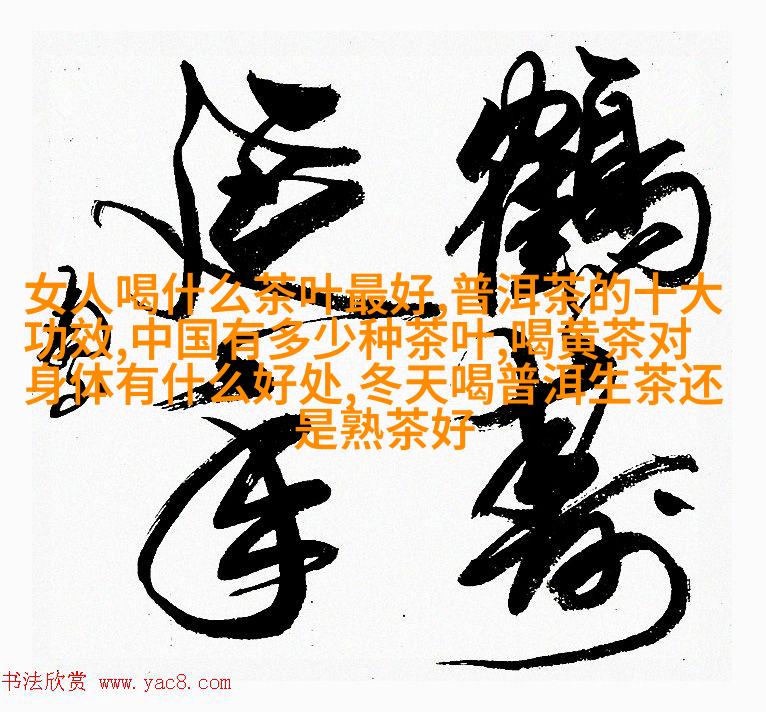 鹤寿
延年
女人喝什么茶叶最好,普洱茶的十大
功效,中国有多少种茶叶,喝黄茶对
身体有什么好处,冬天喝普洱生茶还
是熟茶好
书法欣赏 www.yac8.com